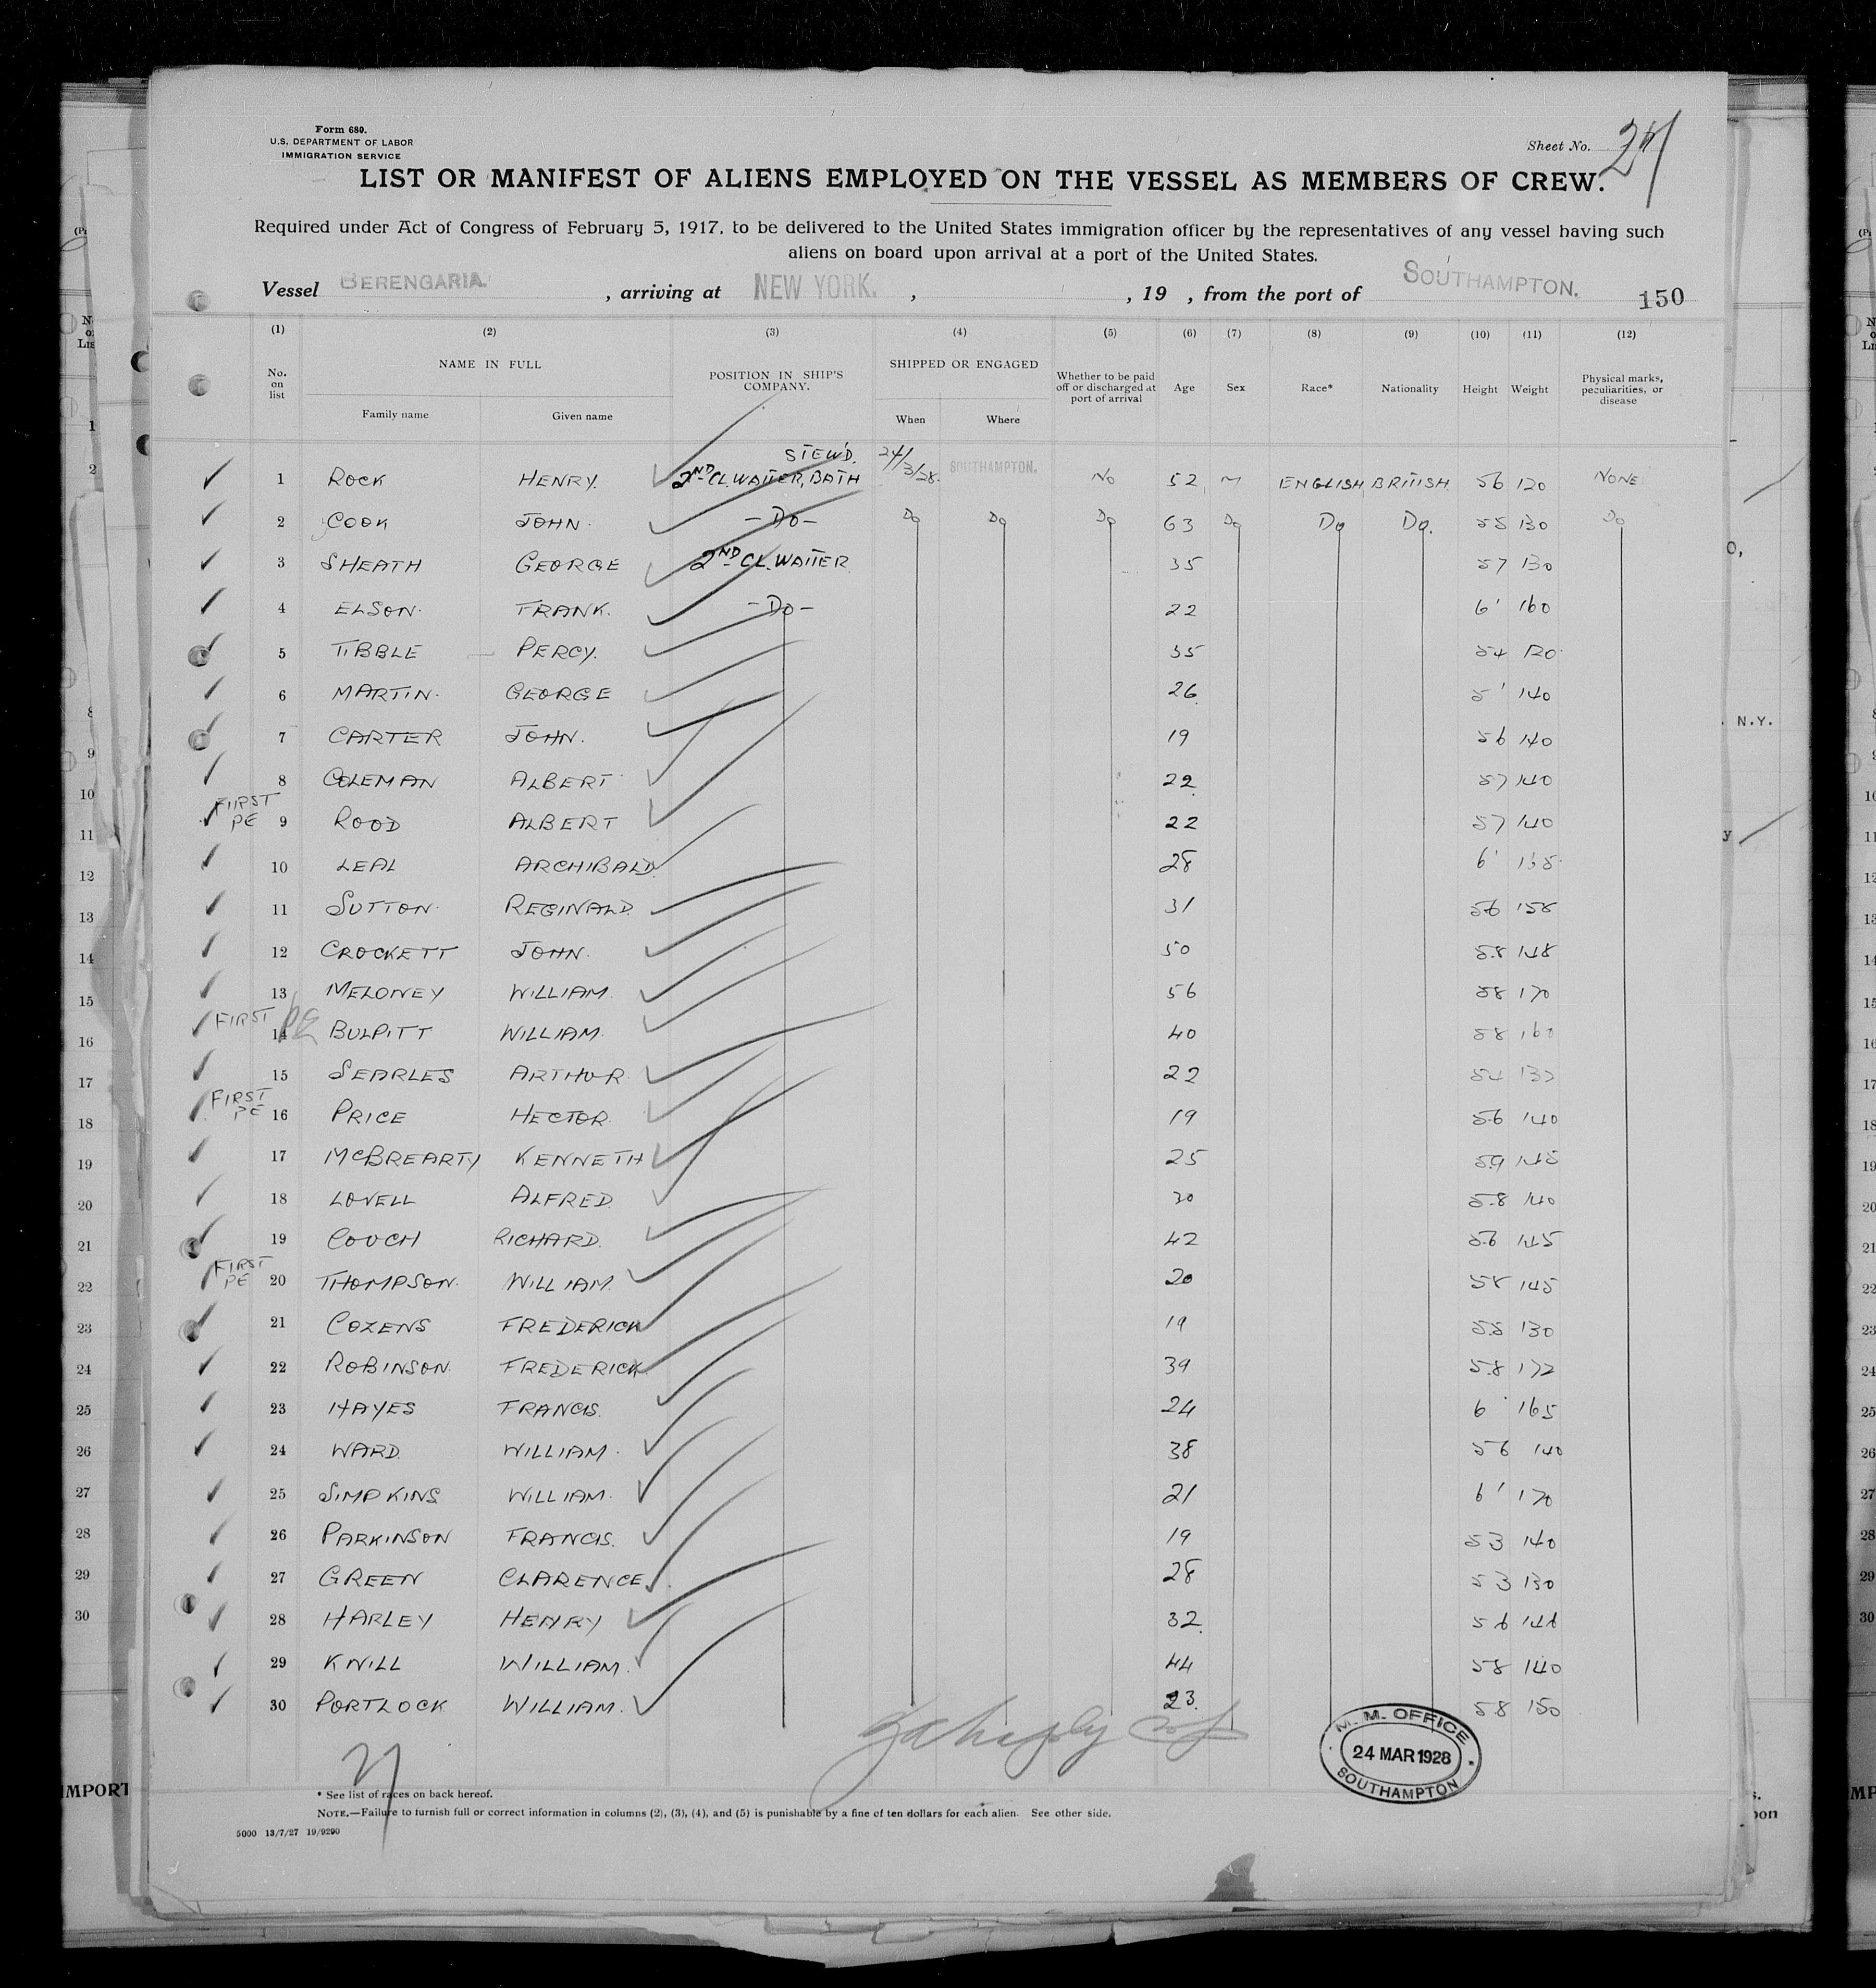 Form 680.
U.S. DEPARTMENT OF LABOR
IMMIGRATION SERVICE
Sheet No.
LIST OR MANIFEST OF ALIENS EMPLOYED ON THE VESSEL AS MEMBERS OF CREW.
Required under Act of Congress of February 5, 1917, to be delivered to the United States immigration officer by the representatives of any vessel having such
aliens on board upon arrival at a port of the United States.
Vessel BERENGARIA. , arriving at NEW YORK. , , 19 , from the port of SOUTHAMPTON. 150
(1) (2) (3) (4) (5) (6) (7) (8) (9) (10) (11) (12)
No. on list NAME IN FULL Family name Given name POSITION IN SHIP'S COMPANY. SHIPPED OR ENGAGED When Where Whether to be paid off or discharged at port of arrival Age Sex Race* Nationality Height Weight Physical marks, peculiarities, or disease
1 ROCK HENRY. 2ND CL. WAITER, BATH STEW'D. 24/3/28. SOUTHAMPTON. NO 52 M ENGLISH BRITISH 56 120 NONE
2 COOK JOHN. - DO - Do Do Do 63 Do Do Do. 55 130 Do
3 SHEATH GEORGE 2ND CL. WAITER 35 57 130
4 ELSON. FRANK. - DO - 22 6' 160
5 TIBBLE PERCY. 35 54 120
6 MARTIN. GEORGE 26 5' 140
7 CARTER JOHN. 19 56 140
8 COLEMAN ALBERT 22 57 140
FIRST PE 9 ROOD ALBERT 22 57 140
10 LEAL ARCHIBALD. 28 6'
11 SUTTON. REGINALD. 31 56 158
12 CROCKETT JOHN. 50 5.8 148
13 MELONEY WILLIAM. 56 58 170
FIRST PE 14 BULPITT WILLIAM. 40 58 160
15 SEARLES ARTHUR. 22 54
FIRST PE 16 PRICE HECTOR. 19 5.6 140
17 MCBREARTY KENNETH 25 5.9
18 LOVELL ALFRED. 30 5.8 140
19 COUCH RICHARD. 42 5.6 145
FIRST PE 20 THOMPSON. WILLIAM. 20 58 145
21 COZENS FREDERICK 19 5.5 130
22 ROBINSON. FREDERICK 39 5.8 172
23 HAYES FRANCIS. 24 6 165
24 WARD. WILLIAM. 38 56 140
25 SIMPKINS WILLIAM. 21 6' 170
26 PARKINSON FRANCIS. 19 53 140
27 GREEN CLARENCE. 28 53 130
28 HARLEY HENRY 32. 56 146
29 KNILL WILLIAM. 44 58 140
30 PORTLOCK WILLIAM. 23. 58 150
M. M. OFFICE
24 MAR 1928
SOUTHAMPTON
* See list of races on back hereof.
NOTE.—Failure to furnish full or correct information in columns (2), (3), (4), and (5) is punishable by a fine of ten dollars for each alien. See other side.
5000 13/7/27 19/9290